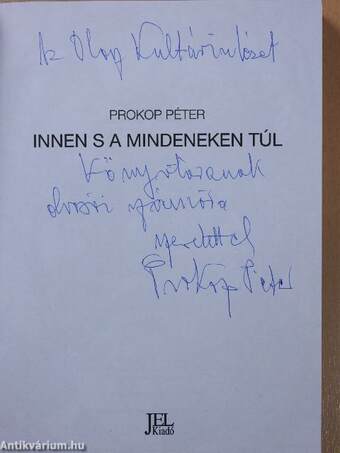 Az Olasz Kultúrintézet
PROKOP PÉTER
INNEN S A MINDENEKEN TÚL
Könyvtárának
olvasói számára
szeretettel
Prokop Péter
JEL
Kiadó
Antikvárium.hu